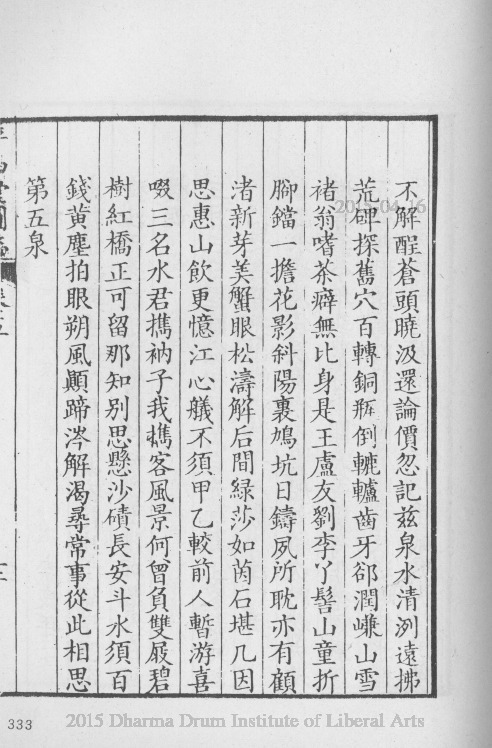 不解酲蒼頭曉汲還論價忽記兹泉水清洌遠拂
荒碑探舊穴百轉銅瓶倒轆轤齒牙郤潤嵰山雪
褚翁嗜茶癖無比身是王盧友劉李丫髻山童折
腳鐺一擔花影斜陽裏鳩坑日鑄夙所耽亦有顧
渚新芽美蟹眼松濤解后間綠莎如茵石堪几因
思惠山飲更憶江心艤不須甲乙較前人暫游喜
啜三名水君攜衲子我攜客風景何曾負雙屐碧
樹紅橋正可留那知別思懸沙磧長安斗水須百
錢黄塵拍眼朔風顛蹄涔解渴尋常事從此相思
第五泉
333
2015-04-16
2015 Dharma Drum Institute of Liberal Arts